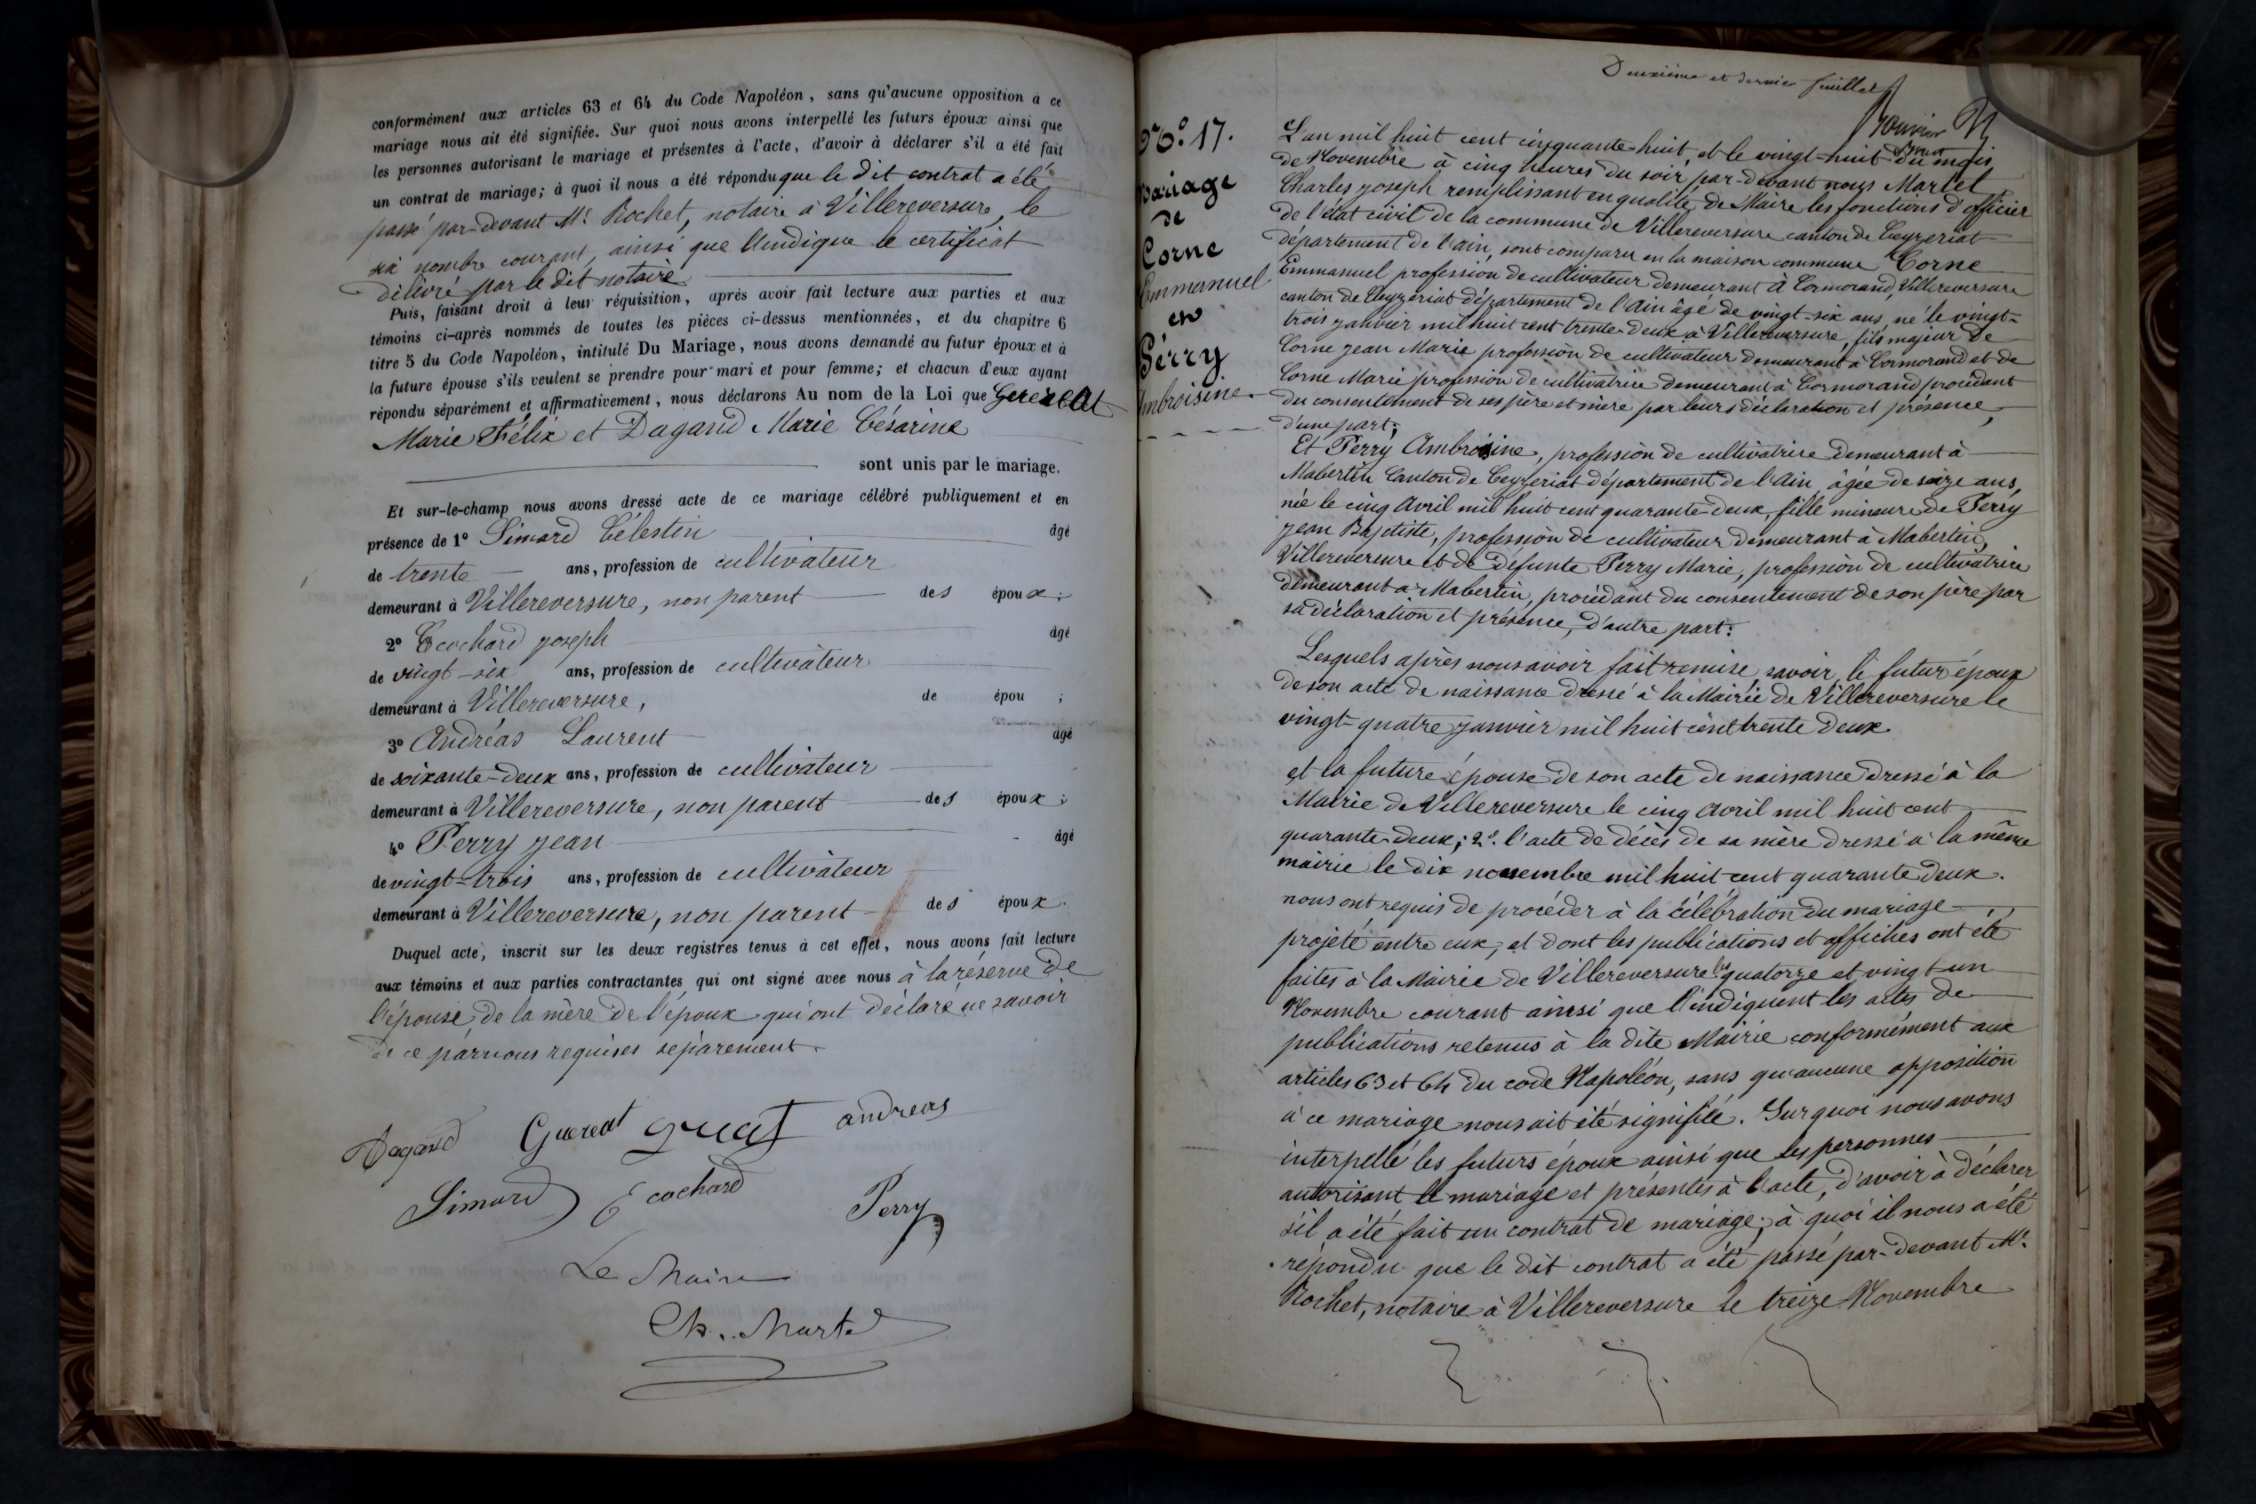 conformément aux articles 63 et 64 du Code Napoléon, sans qu'aucune opposition à ce
mariage nous ait été signifiée. Sur quoi nous avons interpellé les futurs époux ainsi que
les personnes autorisant le mariage et présentes à l'acte, d'avoir à déclarer s'il a été fait
un contrat de mariage; à quoi il nous a été répondu que le dit contrat a été
passé par-devant Me Rochet, notaire à Villereversure, le
six nombre courant, ainsi que l'indique le certificat
délivré par le dit notaire
Puis, faisant droit à leur réquisition, après avoir fait lecture aux parties et aux
témoins ci-après nommés de toutes les pièces ci-dessus mentionnées, et du chapitre 6
titre 5 du Code Napoléon, intitulé Du Mariage, nous avons demandé au futur époux et à
la future épouse s'ils veulent se prendre pour mari et pour femme; et chacun d'eux ayant
répondu séparément et affirmativement, nous déclarons Au nom de la Loi que
Marie Félix et Dagand Marie Césarine
sont unis par le mariage.
Et sur-le-champ nous avons dressé acte de ce mariage célébré publiquement et en
présence de 1° Simard Célestin âgé
de trente ans, profession de cultivateur
demeurant à Villereversure, non parent des époux;
2° Ecochard joseph âgé
de vingt-six ans, profession de cultivateur
demeurant à Villereversure, de épou ;
3° Andréas Laurent âgé
de soixante-deux ans, profession de cultivateur
demeurant à Villereversure, non parent des époux;
4° Perry jean âgé
de vingt-trois ans, profession de cultivateur
demeurant à Villereversure, non parent des époux.
Duquel acte, inscrit sur les deux registres tenus à cet effet, nous avons fait lecture
aux témoins et aux parties contractantes qui ont signé avec nous à la réserve de
l'épouse, de la mère de l'époux qui ont déclaré ne savoir
de ce par nous requises séparément.
Dagand Guereat andreas
Simard Ecochard Perry
Le Maire
Ch. Martel
Deuxième et dernier feuillet
N°. 17.
Mariage
de
Corne
Emmanuel
en
Perry
Ambroisine.
L'an mil huit cent cinquante-huit, et le vingt-huit du mois
de Novembre à cinq heures du soir, par-devant nous Martel
Charles joseph remplissant en qualité de Maire les fonctions d'officier
de l'état civil de la commune de Villereversure canton de Ceyzeriat
département de l'ain, sont comparu en la maison commune Corne
Emmanuel profession de cultivateur demeurant à Cormorand, Villereversure
canton de Ceyzeriat département de l'Ain âgé de vingt-six ans, né le vingt-
trois janvier mil huit cent trente-deux à Villereversure, fils majeur de
Corne jean Marie profession de cultivateur demeurant à Cormorand et de
Corne Marie profession de cultivatrice demeurant à Cormorand procédant
du consentement de ses père et mère par leurs déclaration et présence,
d'une part;
Et Perry Ambroisine, profession de cultivatrice demeurant à
Mabertin Canton de Ceyzeriat département de l'Ain âgée de seize ans,
née le cinq Avril mil huit cent quarante-deux, fille mineure de Perry
jean Baptiste, profession de cultivateur demeurant à Mabertin,
Villereversure et de défunte Perry Marie, profession de cultivatrice
demeurant à Mabertin, procédant du consentement de son père par
sa déclaration et présence, d'autre part:
Lesquels après nous avoir fait remise, savoir, le futur époux
de son acte de naissance dressé à la Mairie de Villereversure le
vingt-quatre janvier mil huit cent trente deux
et la future épouse de son acte de naissance dressé à la
Mairie de Villereversure le cinq Avril mil huit cent
quarante-deux; 2° l'acte de décès de sa mère dressé à la même
mairie le dix novembre mil huit cent quarante deux.
nous ont requis de procéder à la célébration du mariage
projeté entre eux, et dont les publications et affiches ont été
faites à la Mairie de Villereversure les quatorze et vingt-un
Novembre courant ainsi que l'indiquent les actes de
publications retenus à la dite Mairie conformément aux
articles 63 et 64 du code Napoléon, sans qu'aucune opposition
à ce mariage nous ait été signifiée. Sur quoi nous avons
interpellé les futurs époux ainsi que les personnes
autorisant le mariage et présentes à l'acte, d'avoir à déclarer
s'il a été fait un contrat de mariage; à quoi il nous a été
répondu que le dit contrat a été passé par-devant Me.
Rochet, notaire à Villereversure le treize Novembre